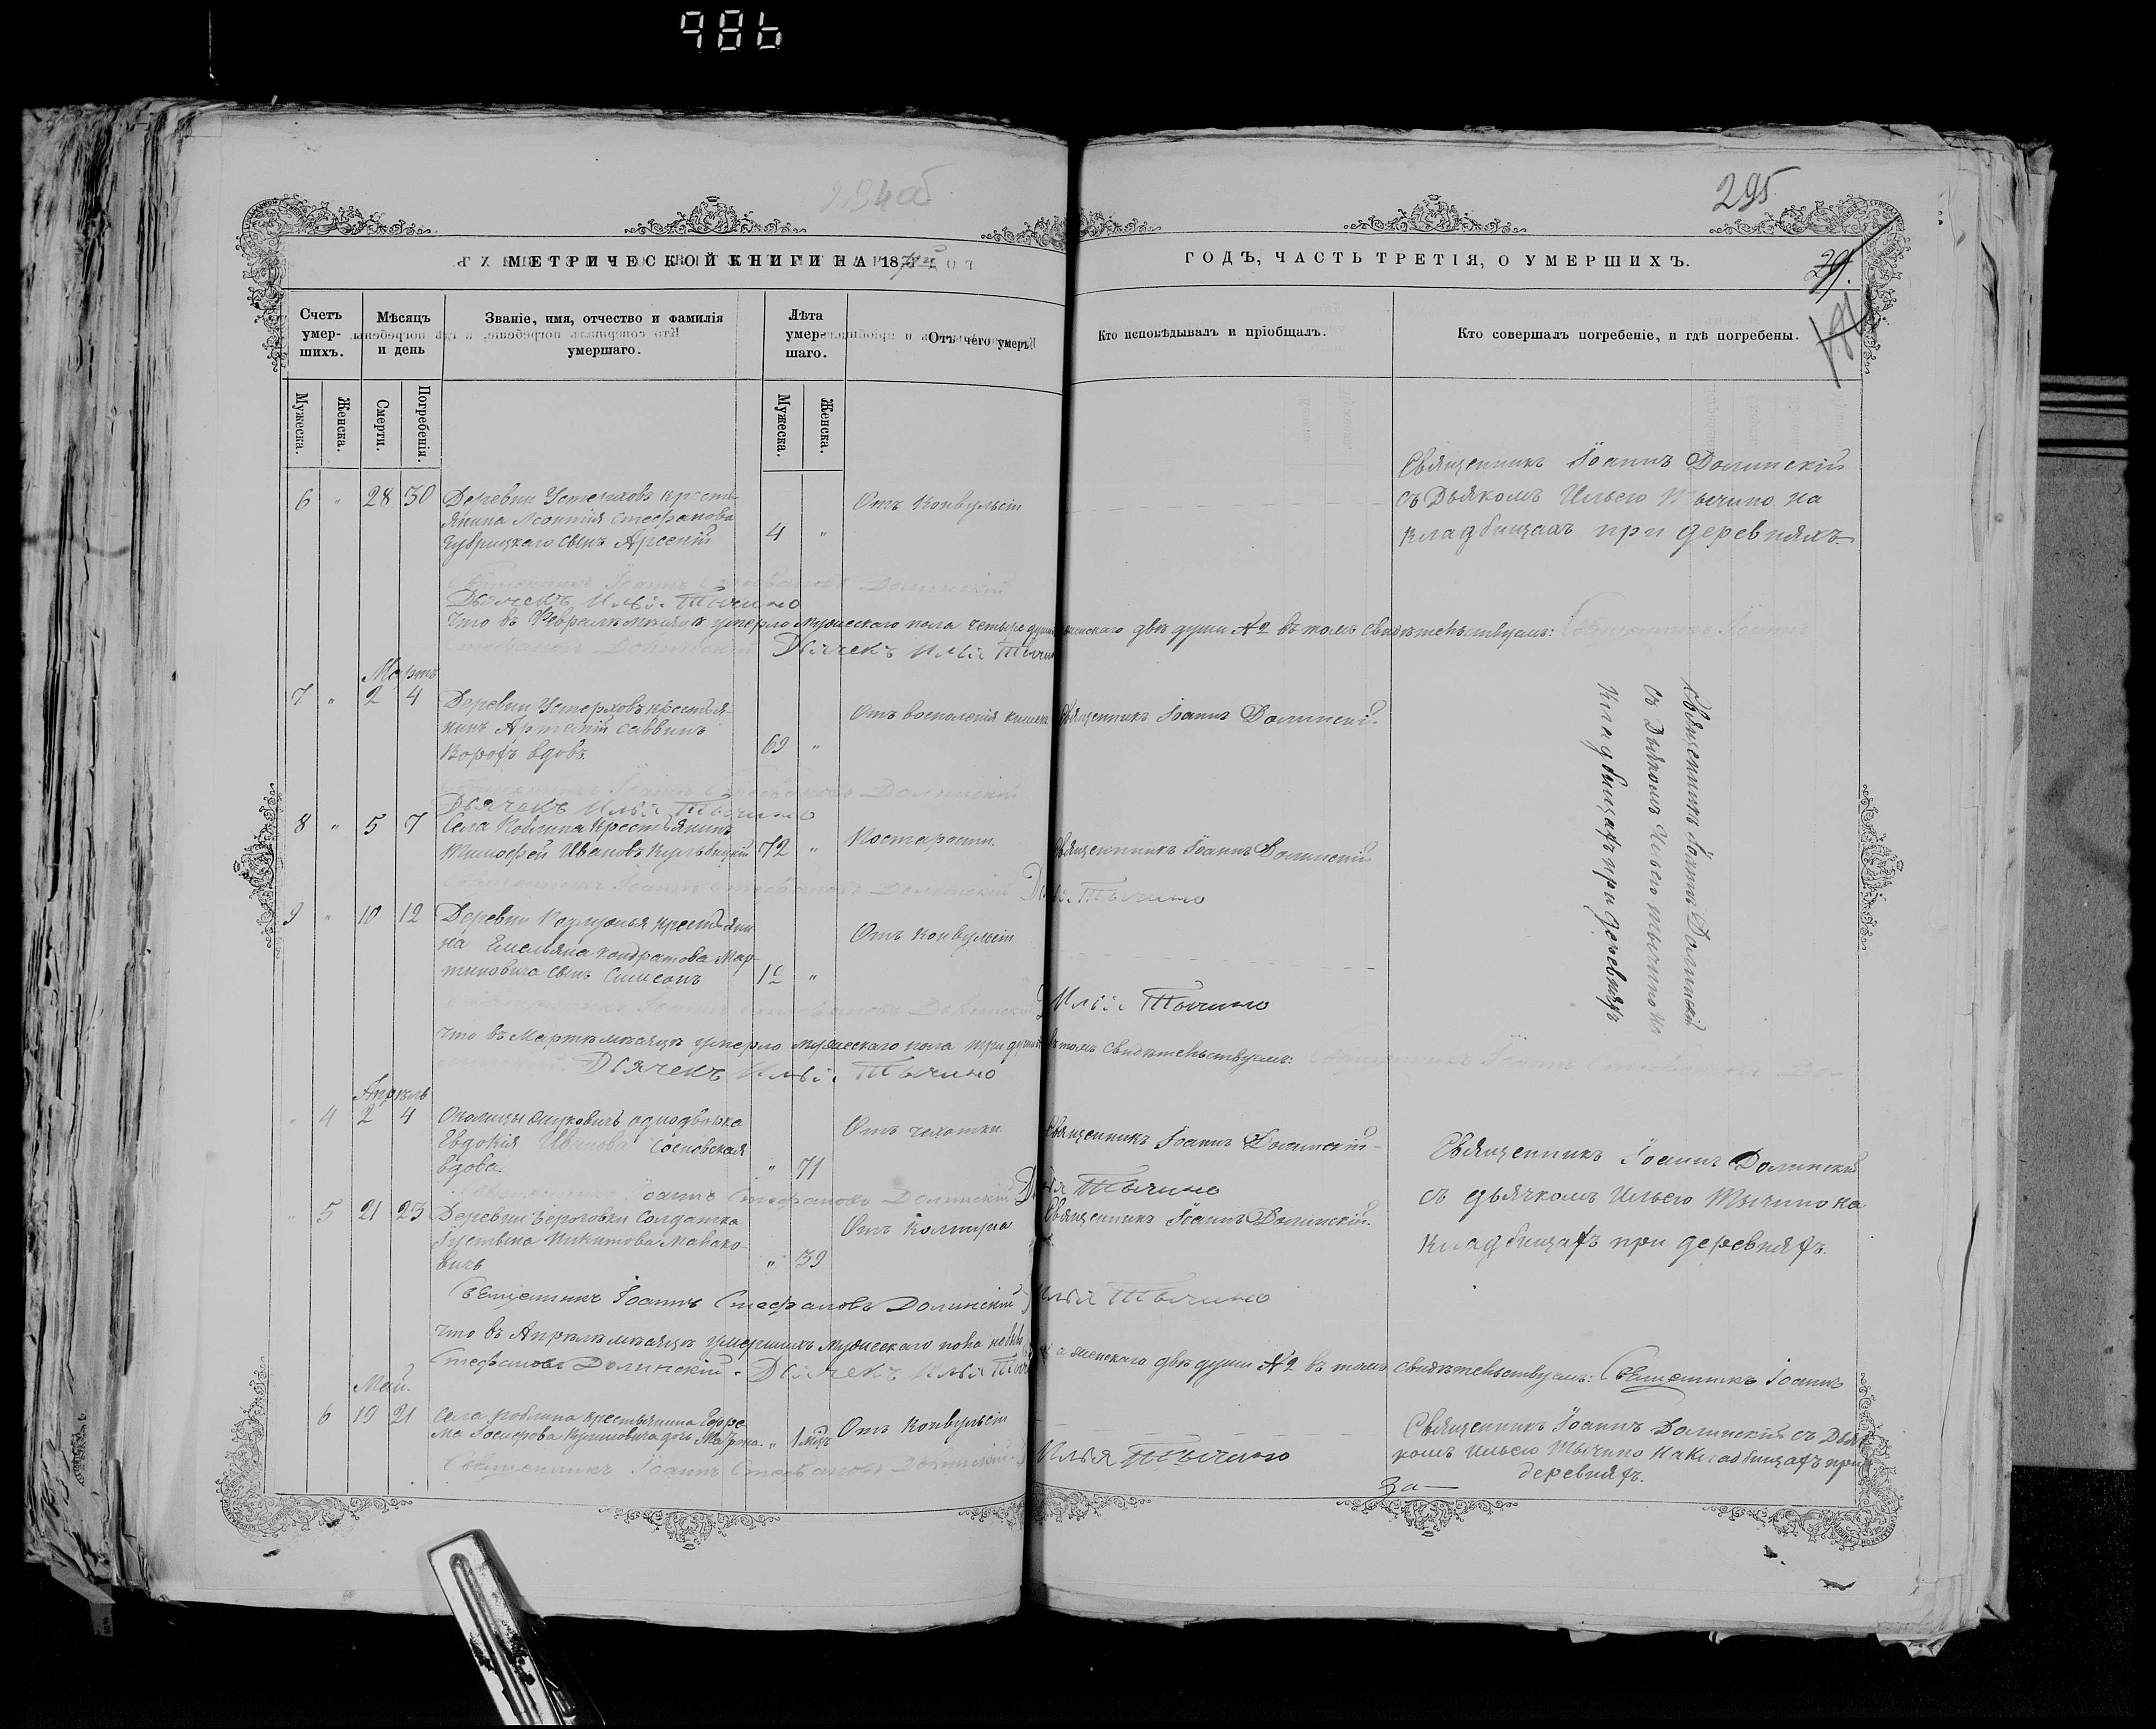 986
294об
295
МЕТРИЧЕСКОЙ КНИГИ НА 187
ГОДЪ, ЧАСТЬ ТРЕТІЯ, О УМЕРШИХЪ.
29.
Счетъ умер- шихъ.
Мѣсяцъ и день
Званіе, имя, отчество и фамилія умершаго.
Лѣта умер- шаго.
Отъ чего умеръ.
Кто исповѣдывалъ и пріобщалъ.
Кто совершалъ погребеніе, и гдѣ погребены.
Мужеска.
Женска.
Смерти.
Погребенія.
Мужеска.
Женска.
6 " 28 30 Деревни Устерховъ кресть-
янина Леонтія Стефанова
сынъ Арсеній 4 "
Отъ конвульсіи
Священникъ Іоаннъ Долинскій
съ Дьякомъ Ильею Тычино на
кладбищахъ при деревняхъ
Священникъ Іоаннъ Стефановъ Долинскій
Дьячекъ Илья Тычино
Что въ Февралѣ мѣсяцѣ умерло мужескаго пола четыре души женскаго двѣ души №2 въ томъ свидѣтельствуемъ: Священникъ Іоаннъ
Стефановъ Долинскій Дьячекъ Илья Тычино
Мартъ
7 " 2 4 Деревни Устерховъ крестья-
нинъ Артемій Саввинъ
вдовъ. 69 "
Отъ воспаленія кишекъ
Священникъ Іоаннъ Долинскій.
Священникъ Іоаннъ Долинскій
съ Дьякомъ Ильею Тычино на
кладбищахъ при деревняхъ
Священникъ Іоаннъ Стефановъ Долинскій
Дьячекъ Илья Тычино
8 " 5 7 Села крестьянинъ
Тимофей Ивановъ 72 "
Постарости.
Священникъ Іоаннъ Долинскій
Священникъ Іоаннъ Стефановъ Долинскій Тычино
9 " 10 12 Деревни Подлужья крестьяни-
на Емельяна Кондратова Мар-
тиновича сынъ Симеонъ "
Отъ конвульсіи
Священникъ Іоаннъ Стефановъ Долинскій Илья Тычино
Что въ Мартѣ мѣсяцѣ умерло мужескаго пола три души въ томъ свидѣтельствуемъ: Священникъ Іоаннъ Стефановъ До-
линскій. Дьячекъ Илья Тычино
Апрѣль
" 4 2 4 Околицы однодворка
Евдокія Иванова Сосновская
вдова. " 71
Отъ чахотки.
Священникъ Іоаннъ Долинскій
Священникъ Іоаннъ Долинскій
съ дьячкомъ Ильею Тычино на
кладбищахъ при деревняхъ.
Священникъ Іоаннъ Стефановъ Долинскій Тычино
" 5 21 23 Деревни солдатка
Никитова
" 39
Отъ колтуна
Священникъ Іоаннъ Долинскій.
Священникъ Іоаннъ Стефановъ Долинскій Илья Тычино
Что въ Апрѣлѣ мѣсяцѣ умершихъ мужескаго пола а женскаго двѣ души №2 въ томъ свидѣтельствуемъ: Священникъ Іоаннъ
Стефановъ Долинскій. Дьячекъ Илья Тычино
Май.
6 19 21 Села крестьянина Ефре-
ма дочь " 1
Отъ конвульсіи
Священникъ Іоаннъ Долинскій съ Дья-
комъ Ильею Тычино на кладбищахъ при
деревняхъ.
Священникъ Іоаннъ Стефановъ Долинскій. Илья Тычино
За—